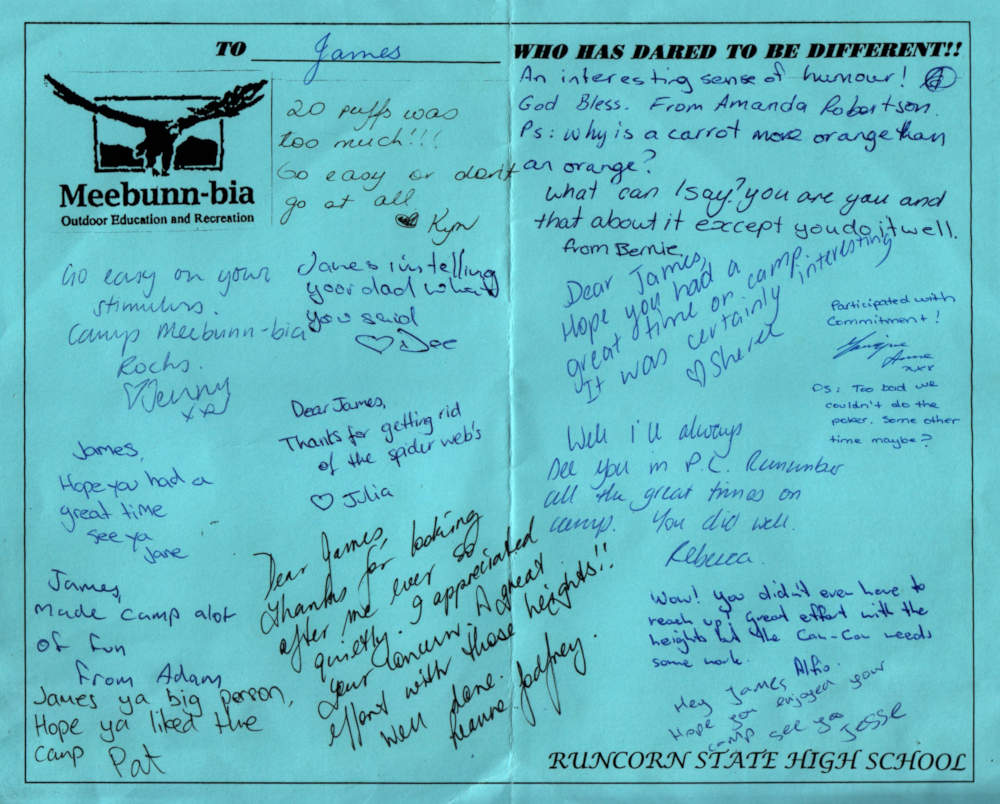 TO James WHO HAS DARED TO BE DIFFERENT!!
Meebunn-bia
Outdoor Education and Recreation
20 puffs was
too much!!!
Go easy or don't
go at all
Kyn
An interesting sense of humour!
God Bless. From Amanda Robertson.
Ps: why is a carrot more orange than
an orange?
What can I say? you are you and
that about it except you do it well.
from Bernie
Go easy on your
stimulus.
Camp Meebunn-bia
Rocks.
Jenny
xx
James i'm telling
your dad what
you said
Dee
Dear James,
Hope you had a
great time on camp.
It was certainly interesting
Sheree
Participated with
Commitment!
Anne
xxx
Ps: Too bad we
couldn't do the
poker. Some other
time maybe?
Dear James,
Thanks for getting rid
of the spider web's
Julia
James,
Hope you had a
great time
see ya
Jane
Well I'll always
see you in P.C. Remember
all the great times on
camp. You did well.
Rebecca.
Dear James,
thanks for looking
after me ever so
quietly. I appreciated
your concern. A great
effort with those heights!!
Well done.
Leanne Godfrey.
James,
Made camp alot
of fun
From Adam
James ya big person,
Hope ya liked the
camp Pat
Wow! you didn't even have to
reach up! Great effort with the
heights but the Can-Can needs
some work.
Alfio.
Hey James
Hope you enjoyed your
camp see ya
Jesse
RUNCORN STATE HIGH SCHOOL